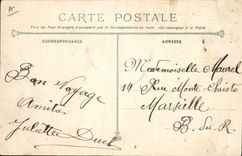 CARTE POSTALE
Tous les Pays Etrangers n'acceptent pas la Correspondance au recto (Se renseigner à la Poste)
CORRESPONDANCE
ADRESSE
Bon Voyage
Amitiés
Juliette
Mademoiselle Maurel
14 Rue Monte-Christo
Marseille
B. du R.